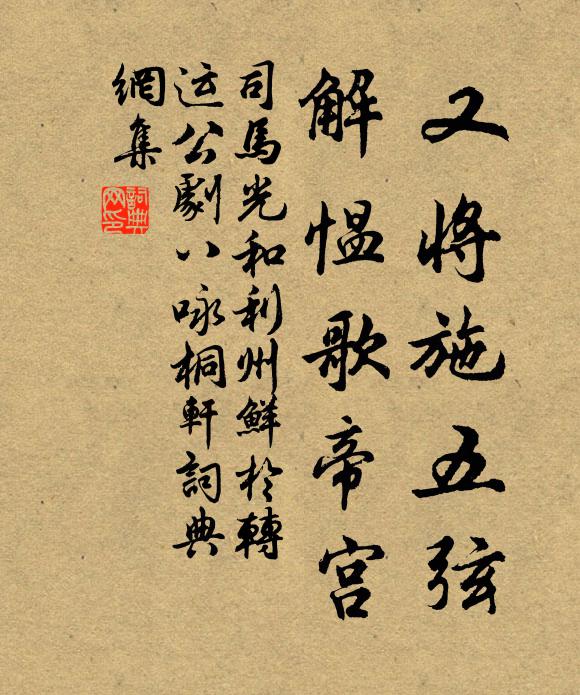 又將施五弦
解愠歌帝宫
司馬光和利州鮮於轉
运公劇八咏桐軒詞典
網集
詞典網印